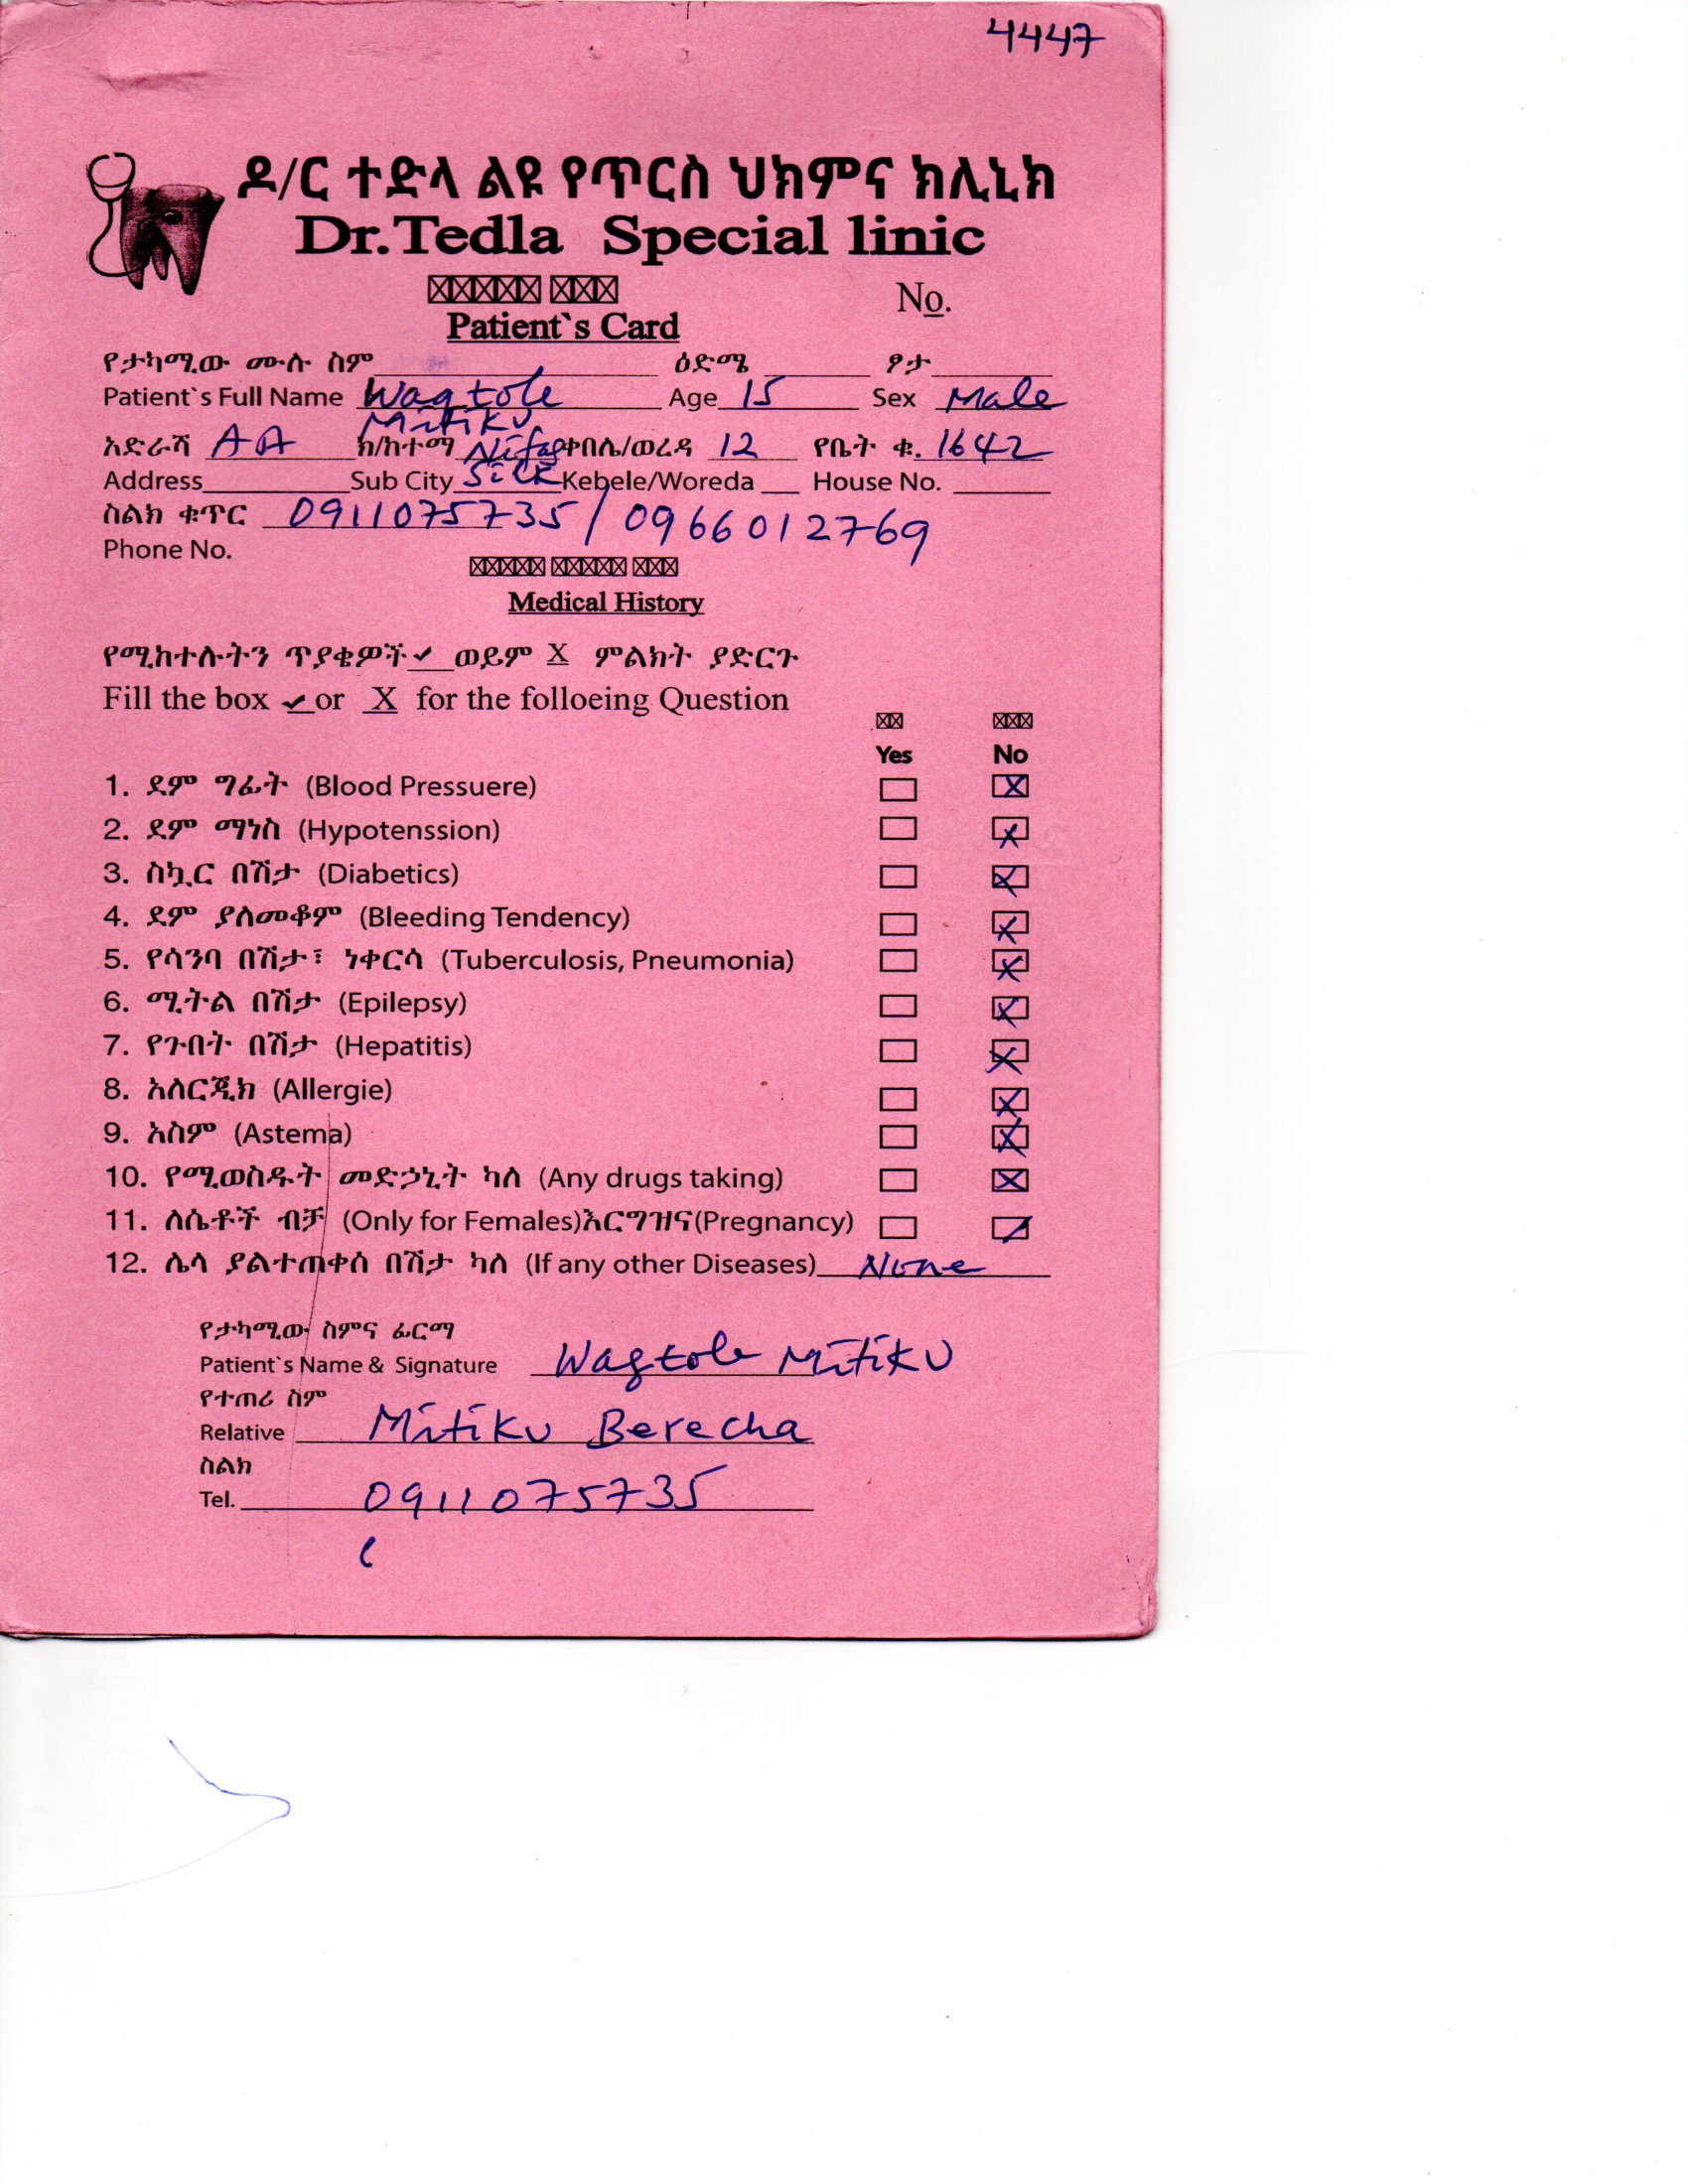 4447
ዶ/ር ተድላ ልዩ የጥርስ ህክምና ክሊኒክ
Dr.Tedla Special linic
No.
Patient`s Card
የታካሚው ሙሉ ስም ዕድሜ ፆታ
Patient`s Full Name Wagtole Age 15 Sex Male
Mitiku
አድራሻ AA ክ/ከተማ Nifas ቀበሌ/ወረዳ 12 የቤት ቁ. 1642
Address Sub City Silk Kebele/Woreda House No.
ስልክ ቁጥር 0911075735 / 0966012769
Phone No.
Medical History
የሚከተሉትን ጥያቄዎች ✓ ወይም X ምልክት ያድርጉ
Fill the box ✓ or X for the folloeing Question
Yes No
1. ደም ግፊት (Blood Pressuere) X
2. ደም ማነስ (Hypotenssion) X
3. ስኳር በሽታ (Diabetics) X
4. ደም ያለመቆም (Bleeding Tendency) X
5. የሳንባ በሽታ፣ ነቀርሳ (Tuberculosis, Pneumonia) X
6. ሚትል በሽታ (Epilepsy) X
7. የጉበት በሽታ (Hepatitis) X
8. አለርጂክ (Allergie) X
9. አስም (Astema) X
10. የሚወስዱት መድኃኒት ካለ (Any drugs taking) X
11. ለሴቶች ብቻ (Only for Females)እርግዝና(Pregnancy) /
12. ሌላ ያልተጠቀሰ በሽታ ካለ (If any other Diseases) None
የታካሚው ስምና ፊርማ
Patient`s Name & Signature Wagtole Mitiku
የተጠሪ ስም
Relative Mitiku Berecha
ስልክ
Tel. 0911075735